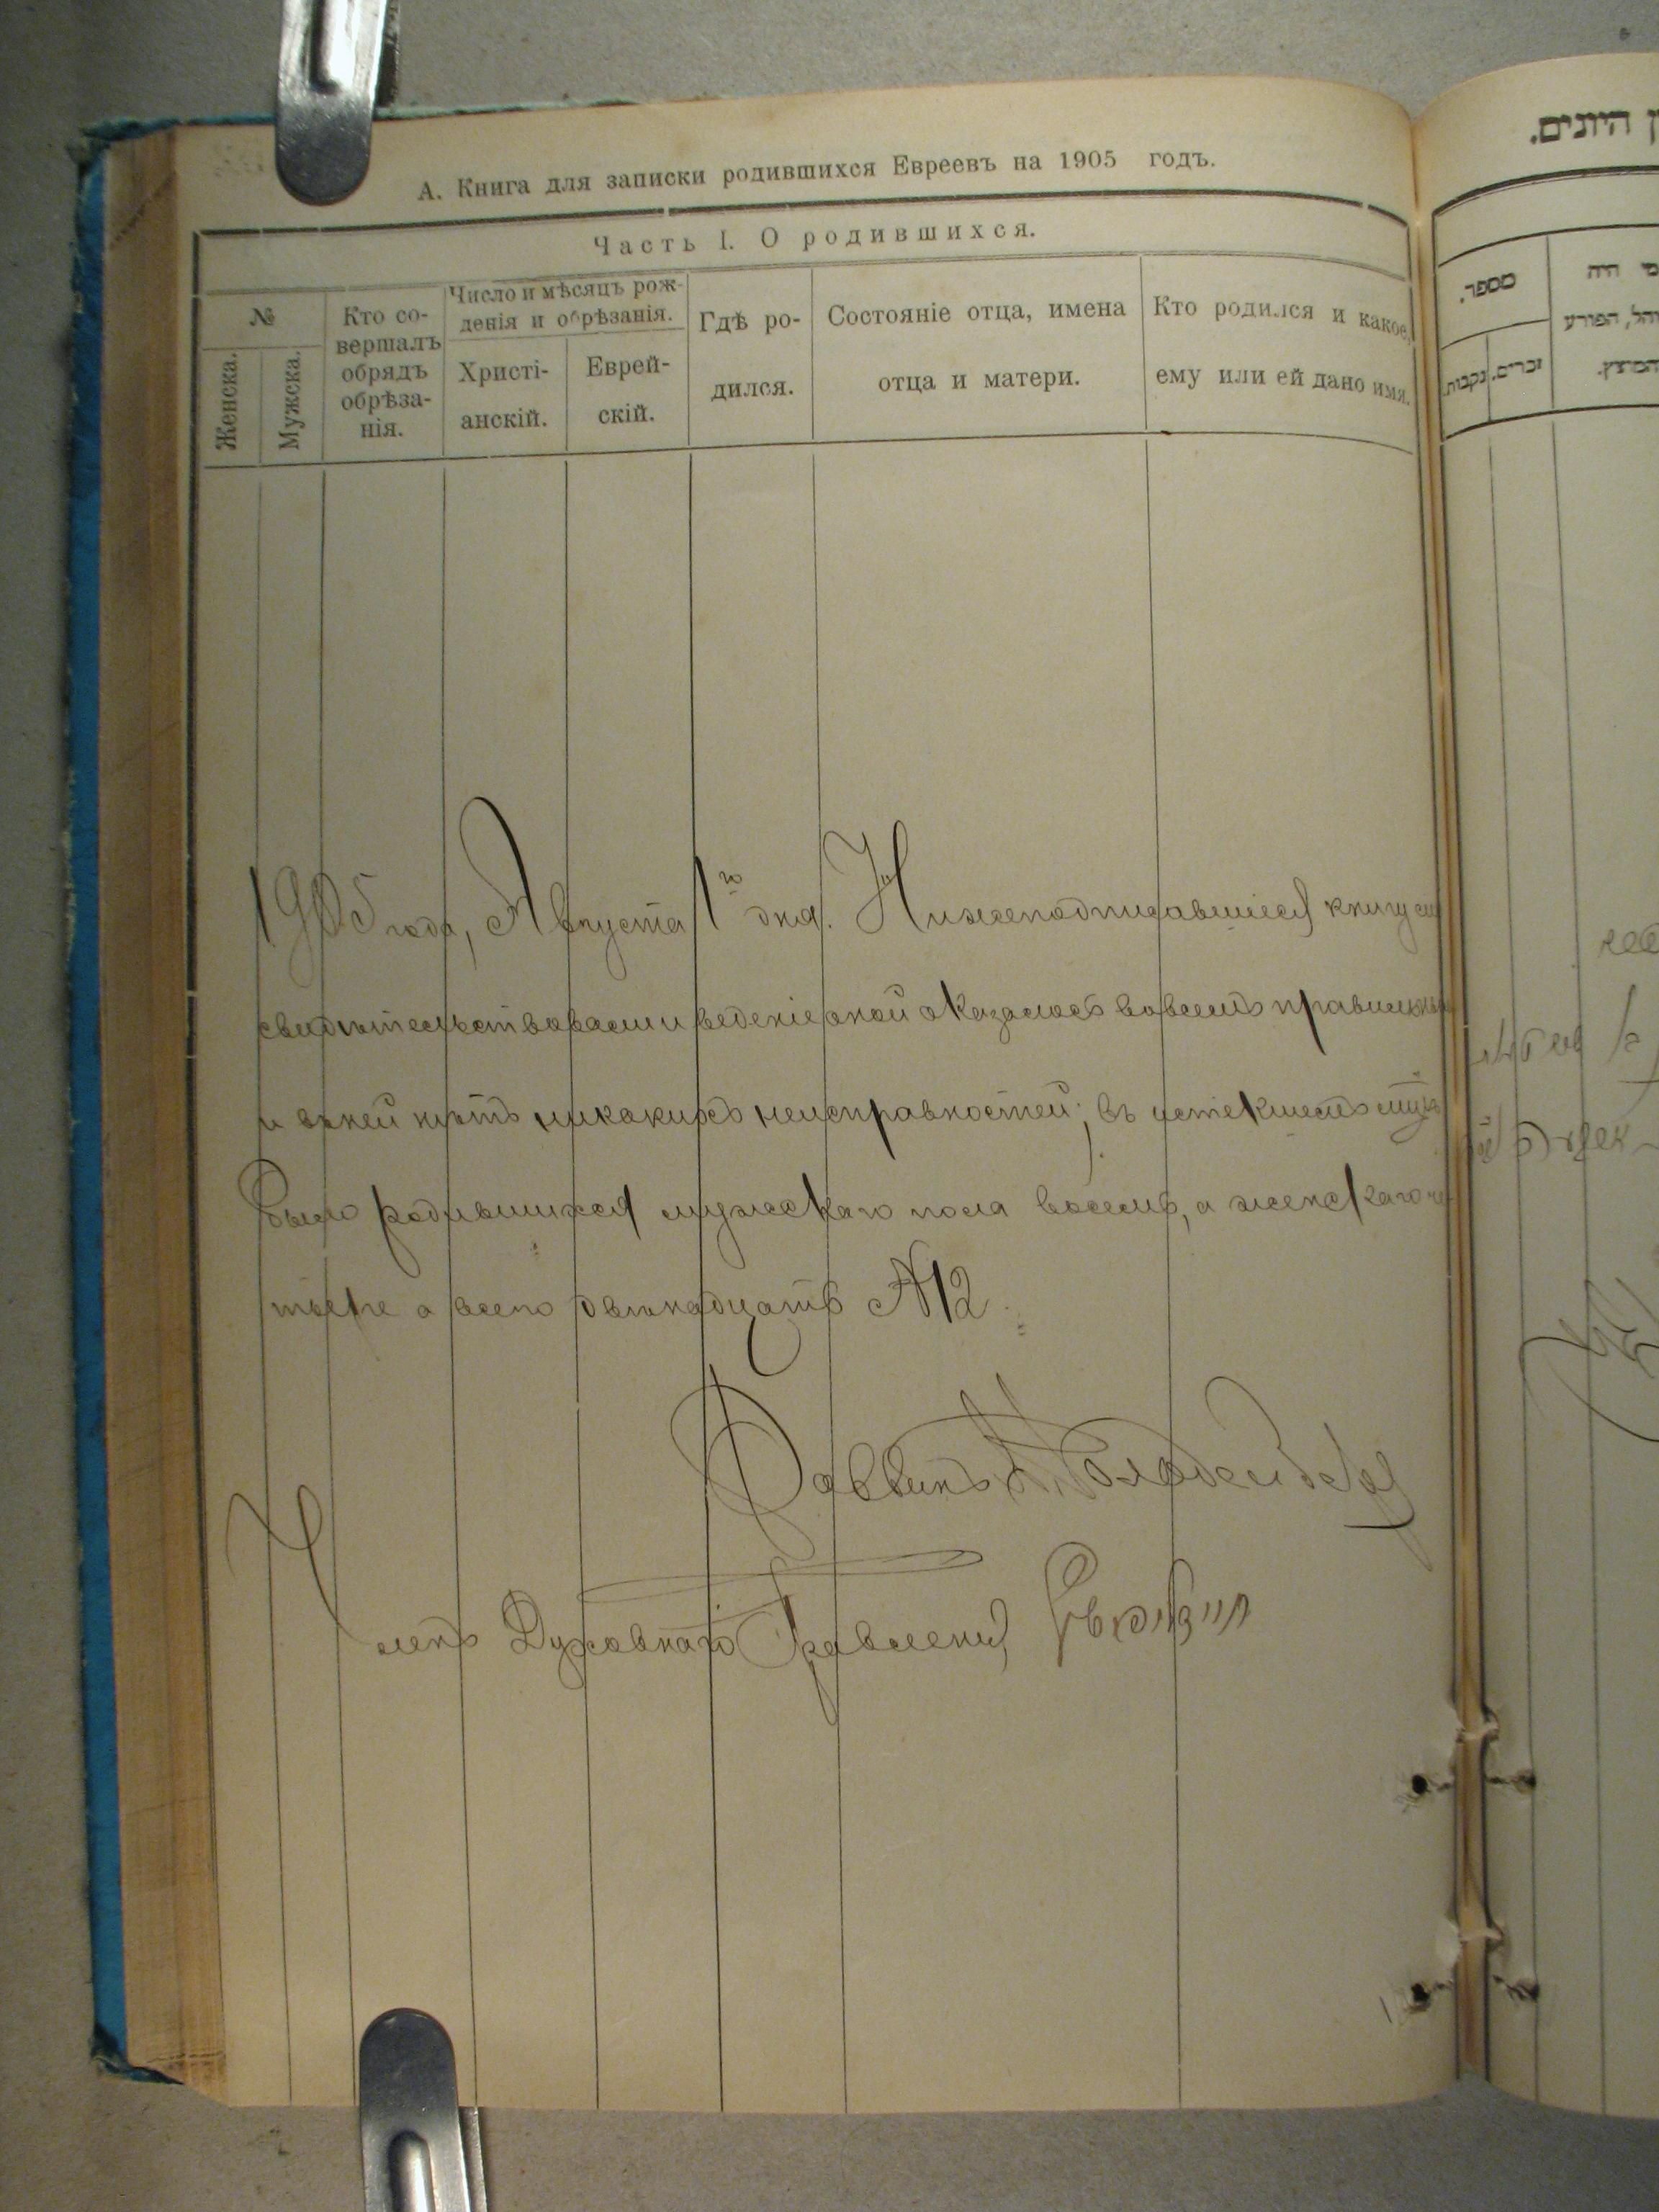 А. Книга для записки родившихся Евреевъ на 1905 годъ.
Часть I. О родившихся.
№
Женска.
Мужска.
Кто со-
вершалъ
обрядъ
обрѣза-
нія.
Число и мѣсяцъ рож-
денія и обрѣзанія.
Христі-
анскій.
Еврей-
скій.
Гдѣ ро-
дился.
Состояніе отца, имена
отца и матери.
Кто родился и какое
ему или ей дано имя.
1905 года, Августа 1го дня. Нижеподписавшіеся книгу сію
свидѣтельствовали и веденіе оной оказалось во всемъ правильнымъ
и в ней нѣтъ никакихъ неисправностей; въ истекшемъ
было родившихся мужскаго пола восемь, а женскаго че-
тыре а всего двѣнадцать №12.
Раввинъ
Членъ Духовнаго Правленія
היונים.
מספר.
נקבות.
זכרים.
מי היה
הפורע